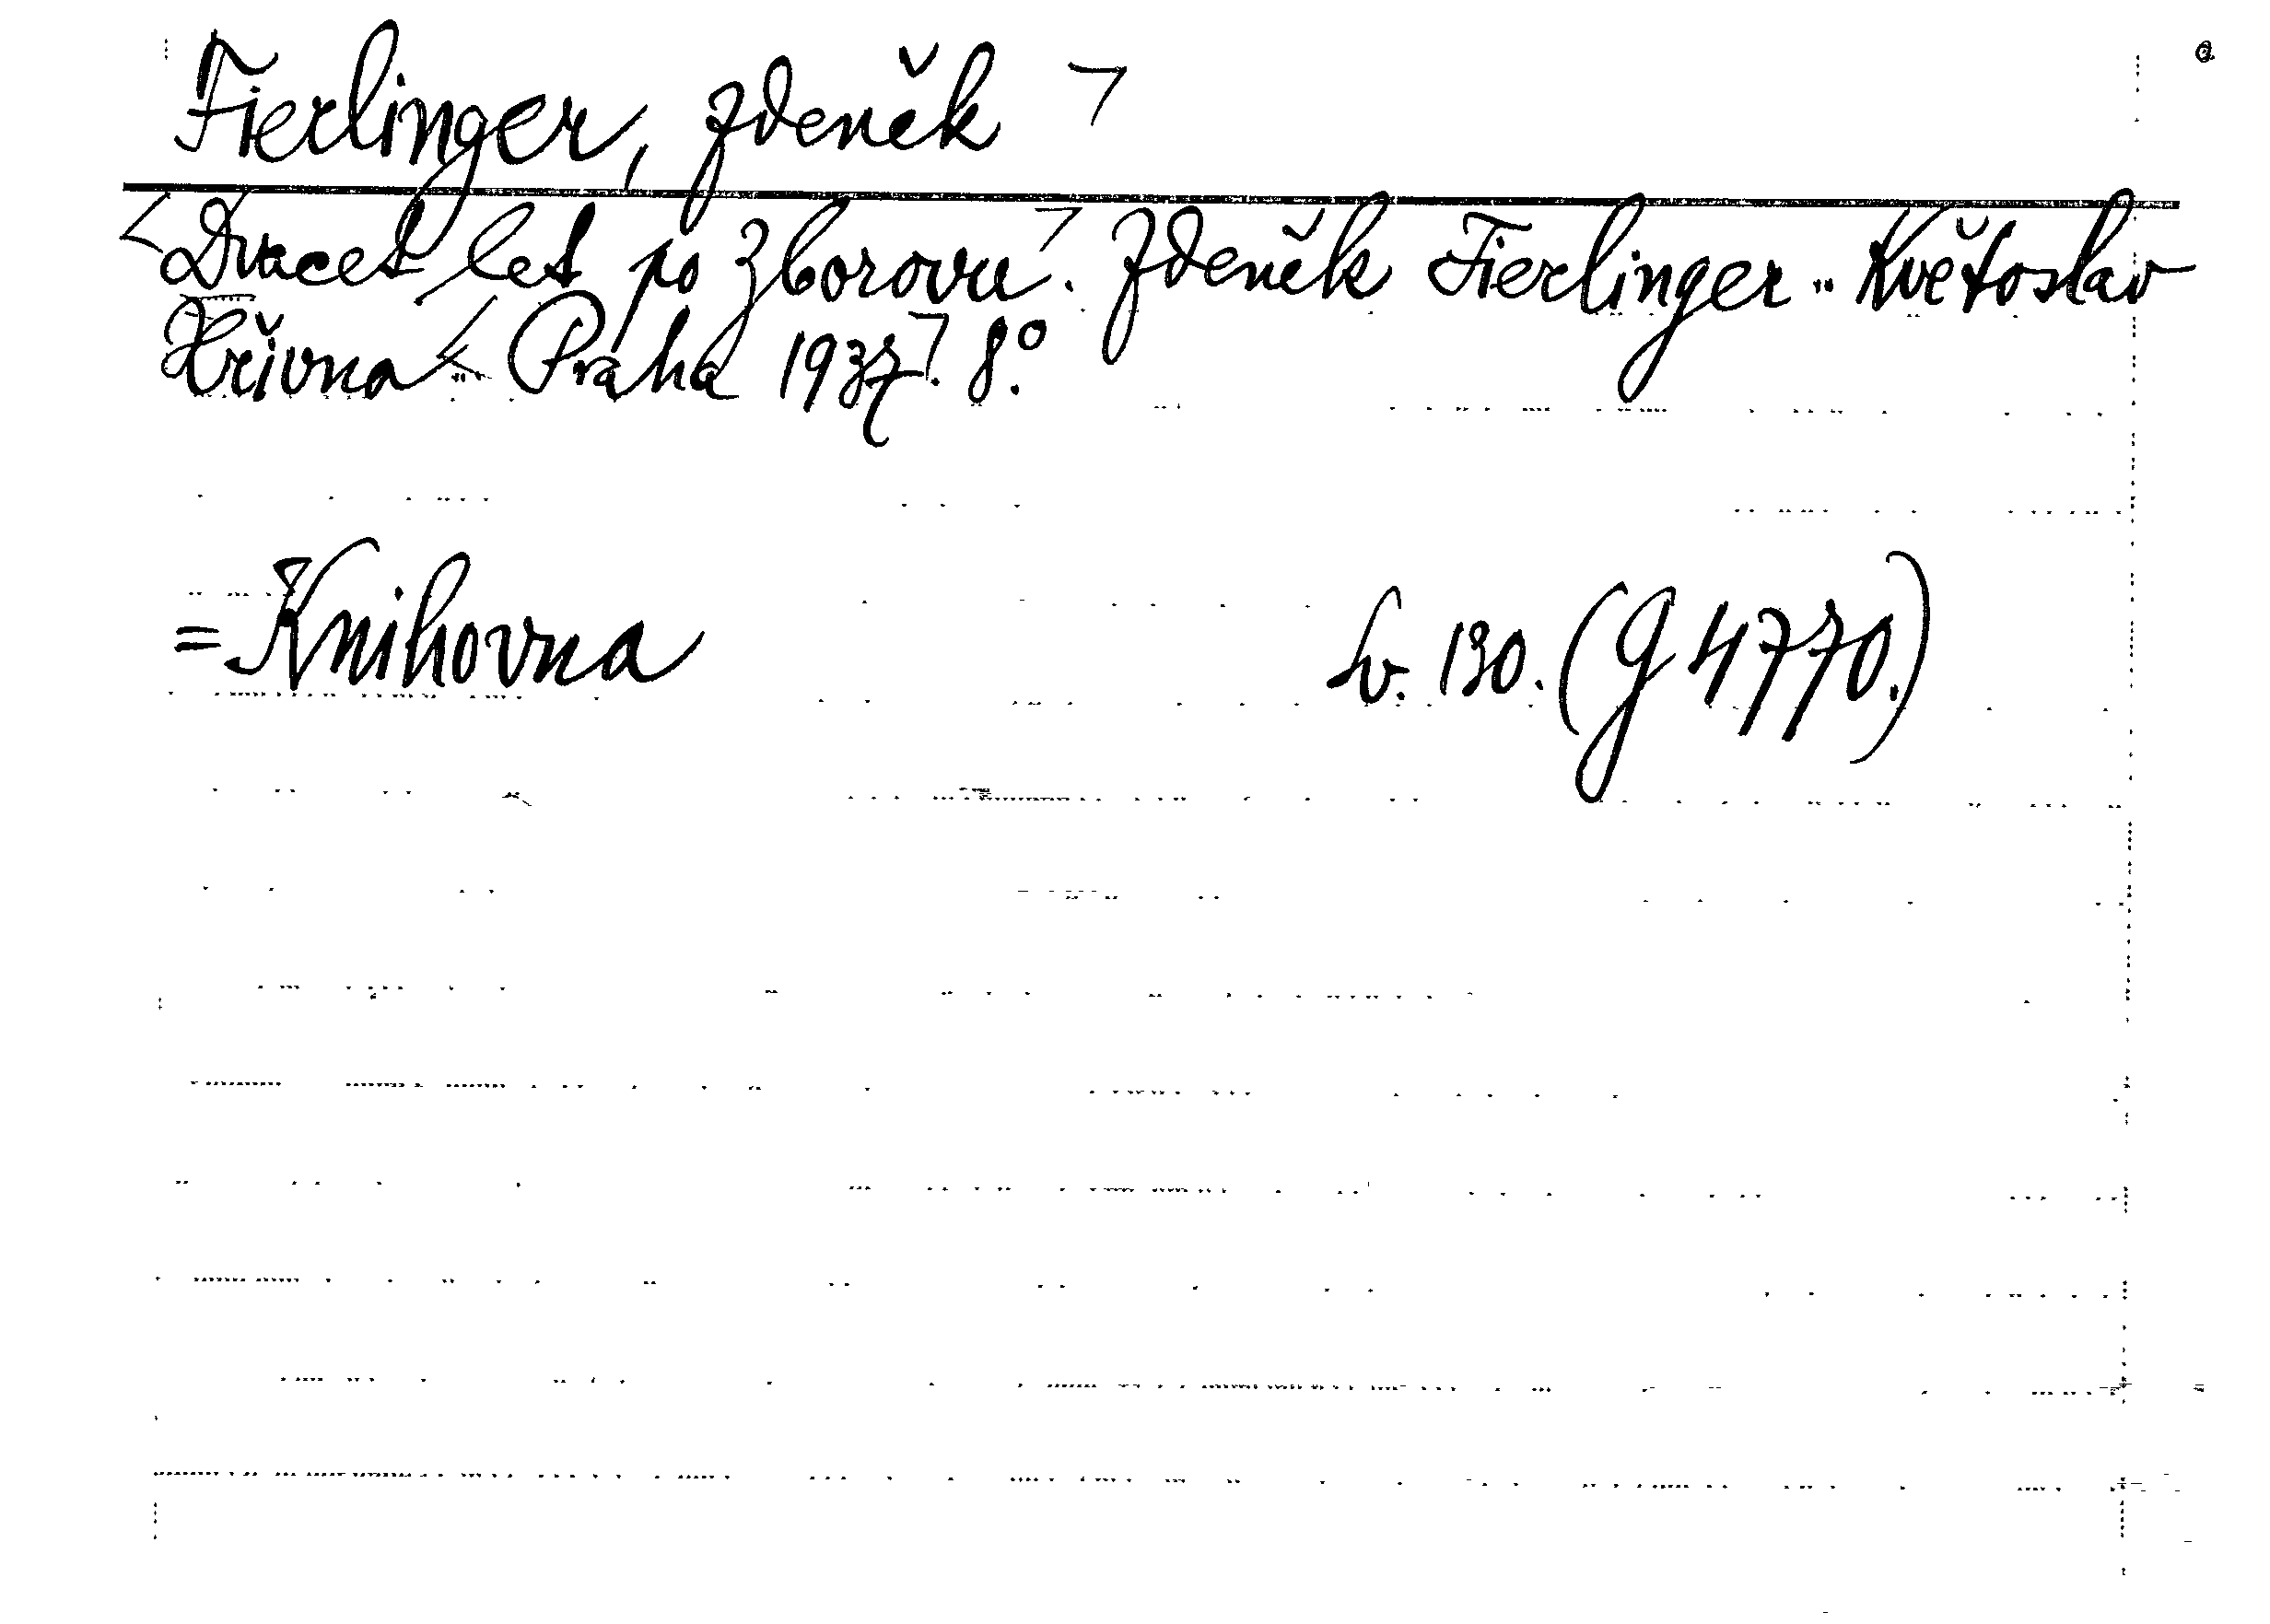 Fierlinger, Zdeněk
Dvacet let po Zborovu. Zdeněk Fierlinger - Květoslav
Hřivna - Praha 1937. 8°.
= Knihovna Sv. 130. (G 4770.)